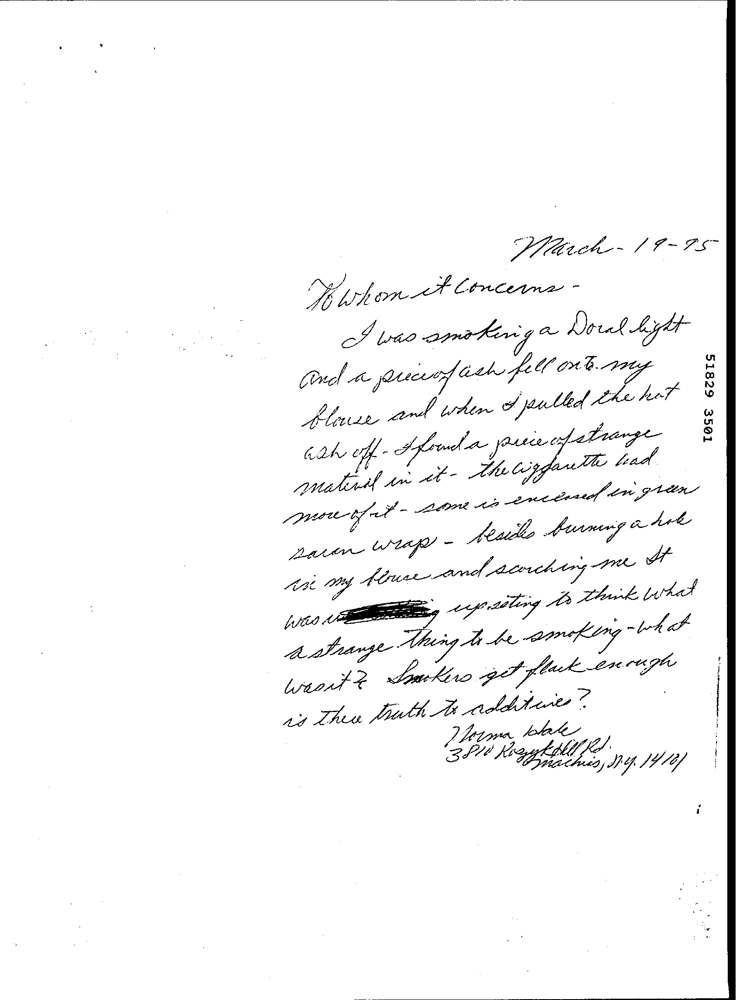 March - 19-95
To whom it Concerns -
I was smoking a Doral light
and a piece of ash fell onto my
blouse and when I pulled the hot
ash off - I found a piece of strange
material in it - the ciggarette had
more of it - some is encased in green
saran wrap - besides burning a hole
in my blouse and scorching me It
was upseting to think what
a strange thing to be smoking - what
was it? Smokers get flack enough
is there truth to additives?
Norma Hale
3810 Hill Rd.
Machias, N.Y. 14101
51829 3501